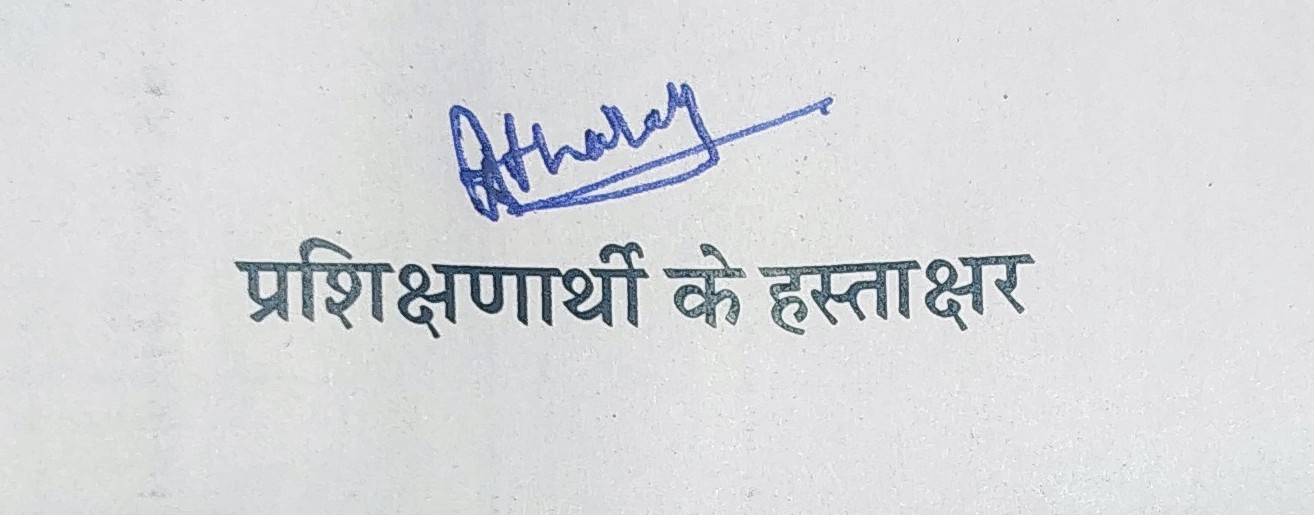 Atharav
प्रशिक्षणार्थी के हस्ताक्षर